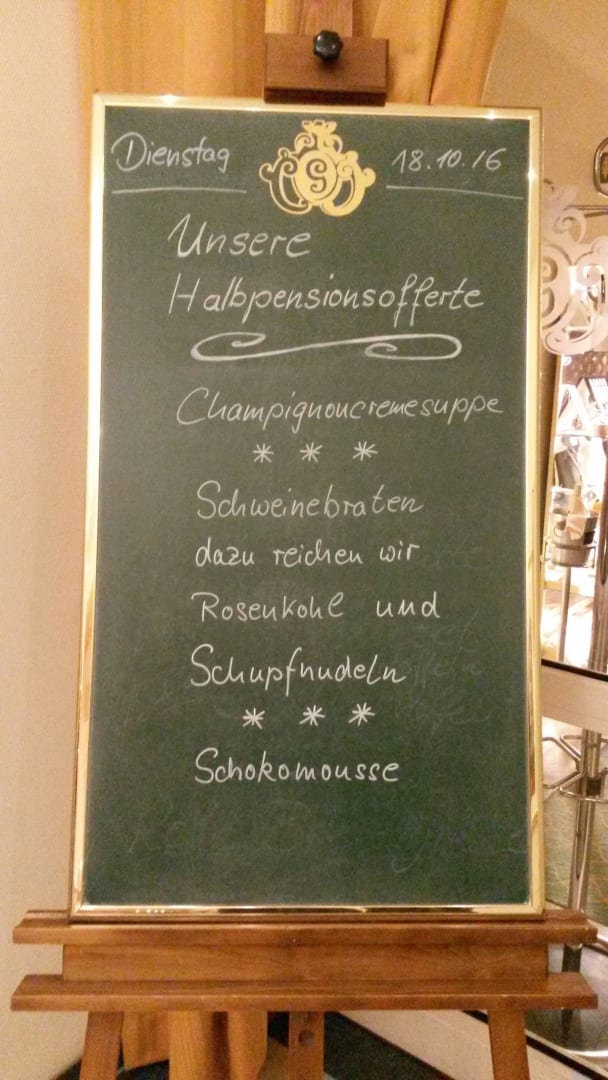 Dienstag 18.10.16
Unsere
Halbpensionsofferte
Champignoncremesuppe
* * *
Schweinebraten
dazu reichen wir
Rosenkohl und
Schupfnudeln
* * *
Schokomousse